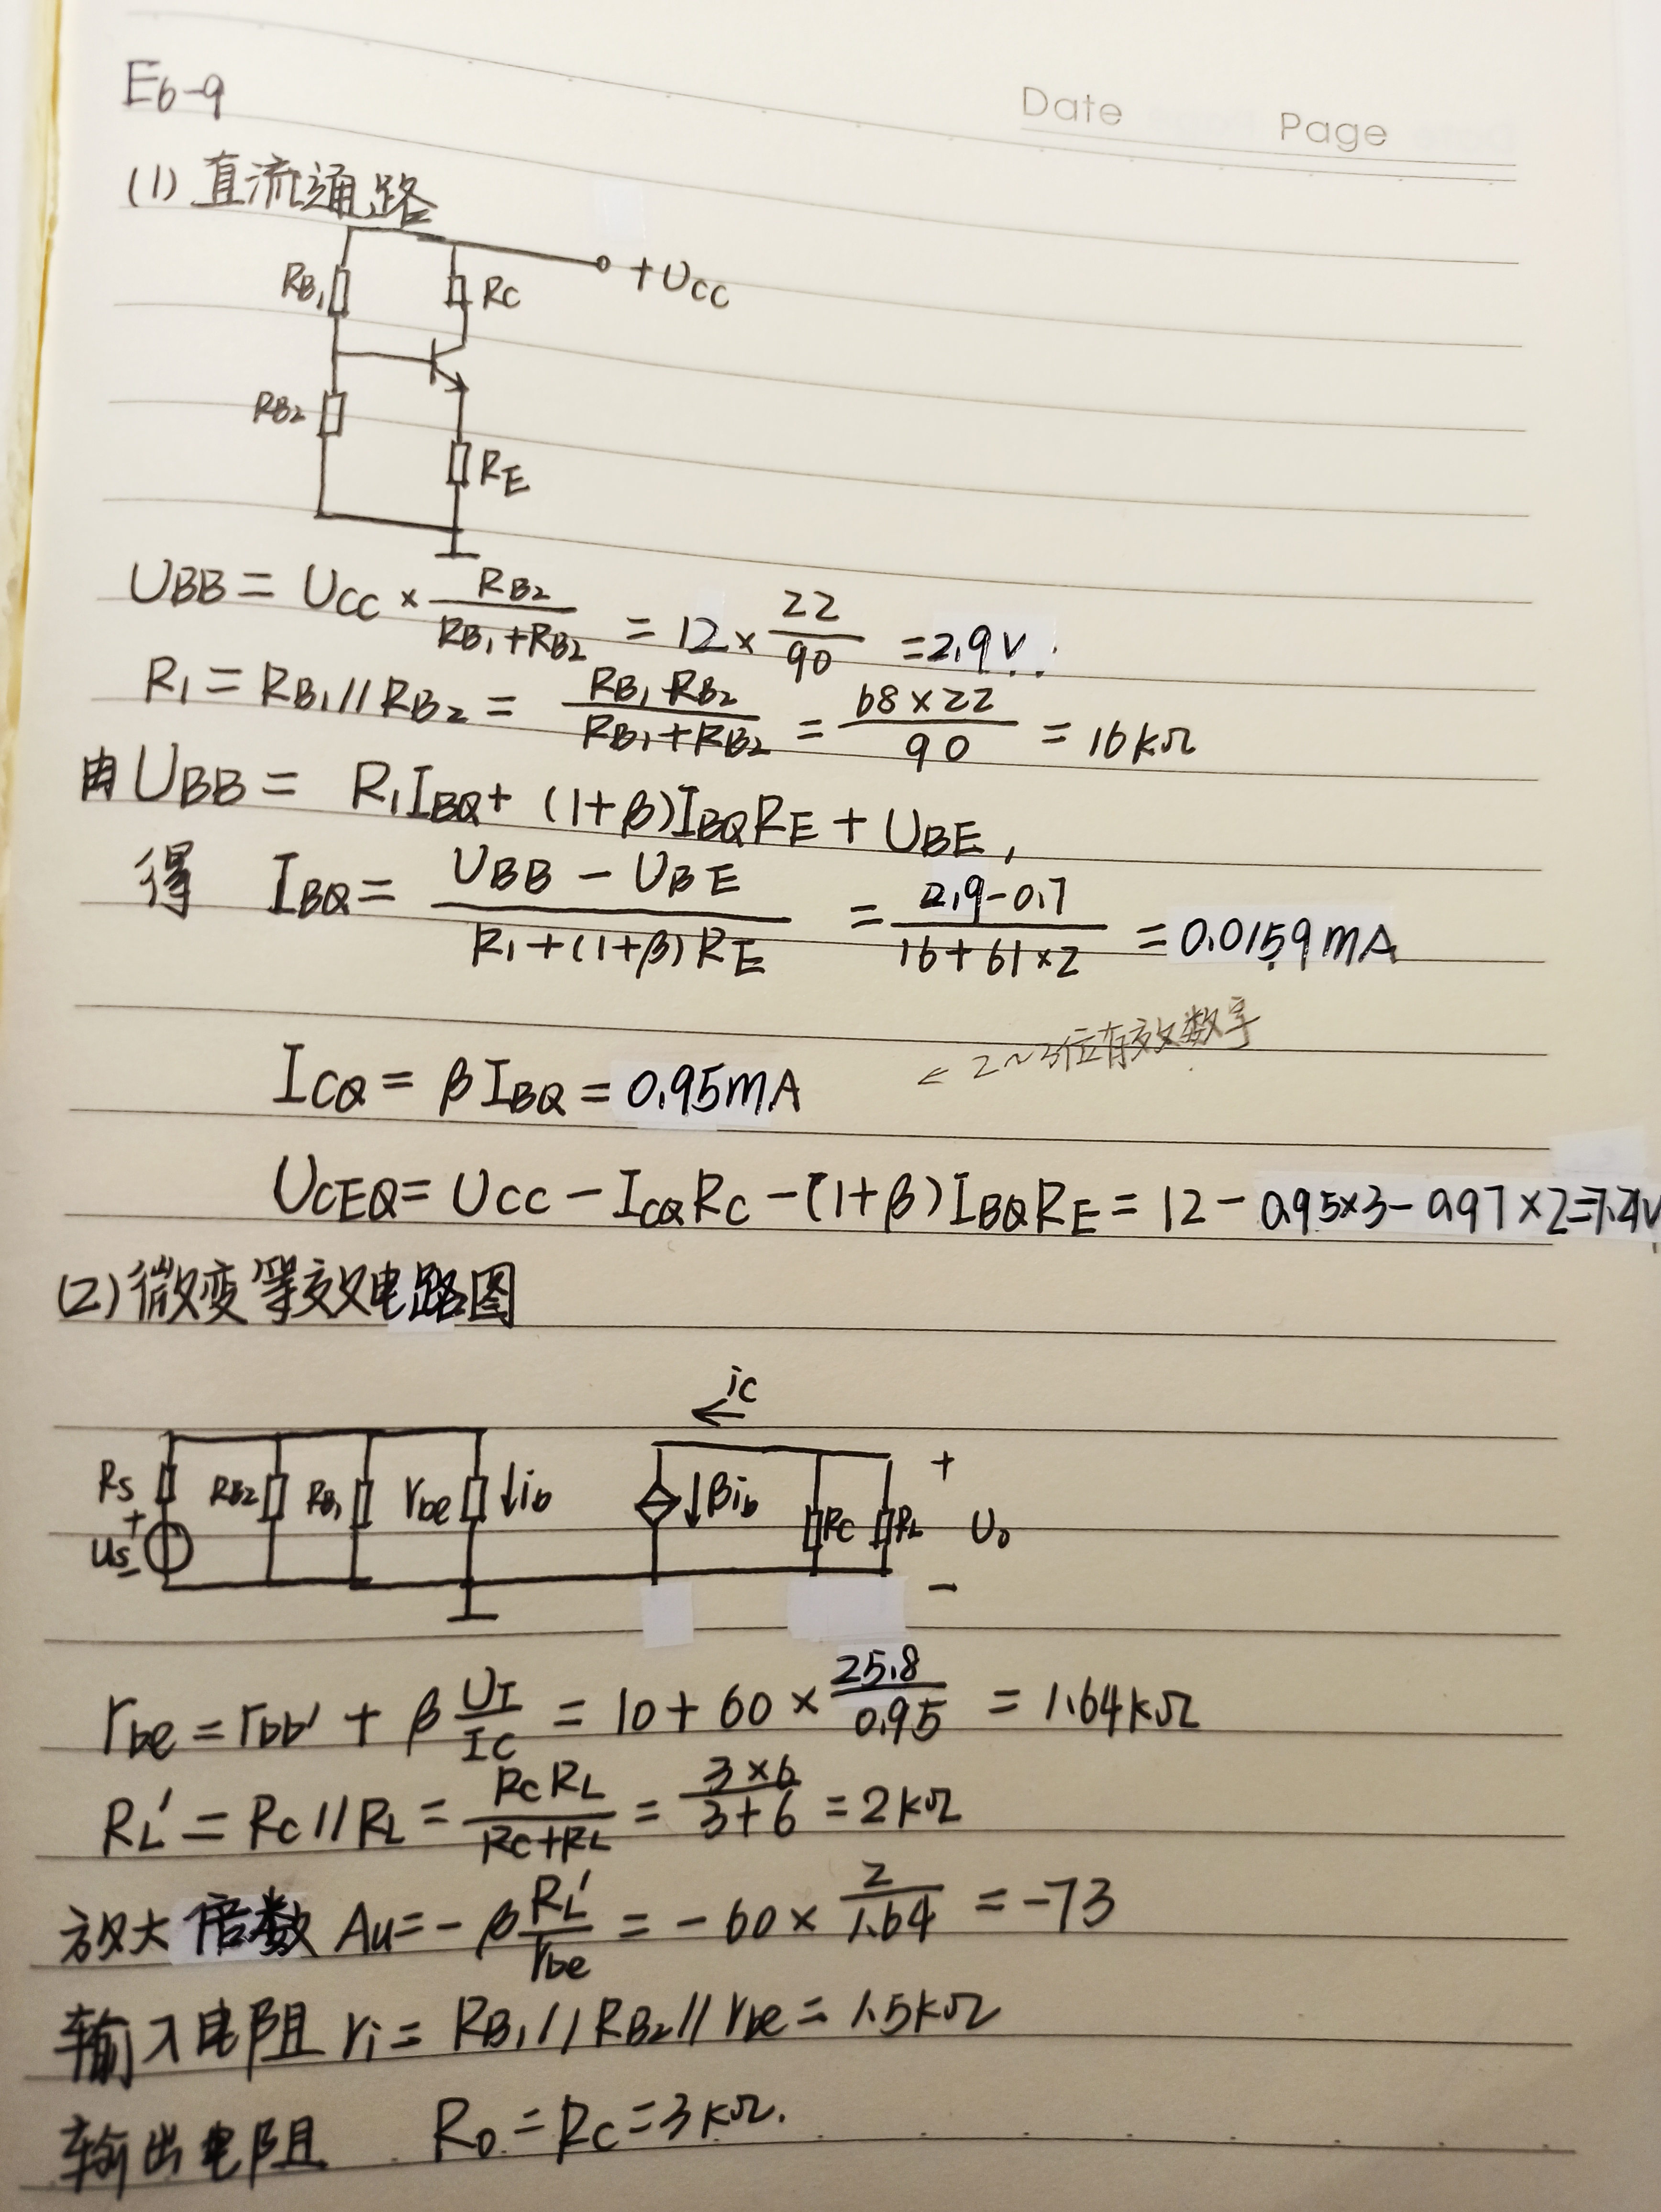 E6-9
Date Page
(1) 直流通路
+UCC
RB1 RC
RB2
RE
UBB = UCC × RB2/(RB1+RB2) = 12 × 22/90 = 2.9V.
R1 = RB1//RB2 = RB1·RB2/(RB1+RB2) = 68×22/90 = 16kΩ
由 UBB = R1IBQ + (1+β)IBQRE + UBE,
得 IBQ = (UBB - UBE)/(R1+(1+β)RE) = (2.9-0.7)/(16+61×2) = 0.0159mA
← 2~3位有效数字
ICQ = βIBQ = 0.95mA
UCEQ = UCC - ICQRC - (1+β)IBQRE = 12 - 0.95×3 - 0.97×2 = 7.2V
(2) 微变等效电路图
ic
RS RB2 RB1 rbe ↓ib ↓βib RC RL + U0 -
+ US -
rbe = rbb' + β UT/IC = 10 + 60 × 25.8/0.95 = 1.64kΩ
RL' = RC//RL = RCRL/(RC+RL) = 3×6/(3+6) = 2kΩ
放大倍数 Au = -β RL'/rbe = -60 × 2/1.64 = -73
输入电阻 ri = RB1//RB2//rbe = 1.5kΩ
输出电阻 RO = RC = 3kΩ.